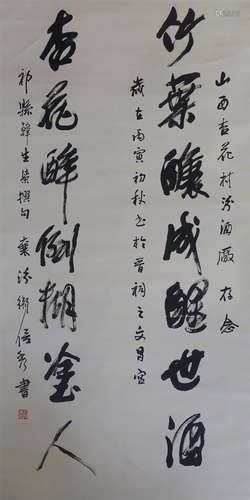 山西杏花村汾酒厰 存念
竹葉釀成醒世酒
歲在丙寅初秋书於晋祠之文昌宫
杏花醉倒糊塗人
祁縣韓生榮撰句 襄汾衛倍秀書